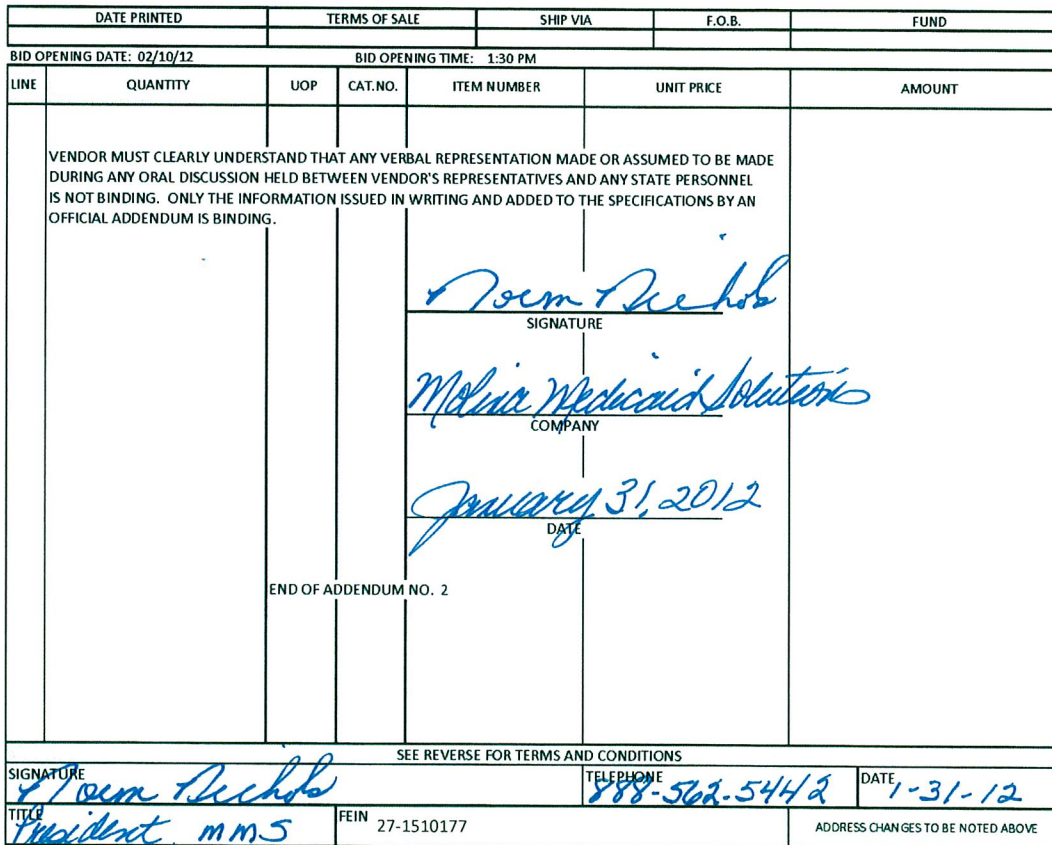 DATE PRINTED TERMS OF SALE SHIP VIA F.O.B. FUND
BID OPENING DATE: 02/10/12 BID OPENING TIME: 1:30 PM
LINE QUANTITY UOP CAT.NO. ITEM NUMBER UNIT PRICE AMOUNT
VENDOR MUST CLEARLY UNDERSTAND THAT ANY VERBAL REPRESENTATION MADE OR ASSUMED TO BE MADE
DURING ANY ORAL DISCUSSION HELD BETWEEN VENDOR'S REPRESENTATIVES AND ANY STATE PERSONNEL
IS NOT BINDING. ONLY THE INFORMATION ISSUED IN WRITING AND ADDED TO THE SPECIFICATIONS BY AN
OFFICIAL ADDENDUM IS BINDING.
Norm Nichols
SIGNATURE
Molina Medicaid Solutions
COMPANY
January 31, 2012
DATE
END OF ADDENDUM NO. 2
SEE REVERSE FOR TERMS AND CONDITIONS
SIGNATURE Norm Nichols TELEPHONE 888-562-5442 DATE 1-31-12
TITLE President, MMS FEIN 27-1510177 ADDRESS CHANGES TO BE NOTED ABOVE